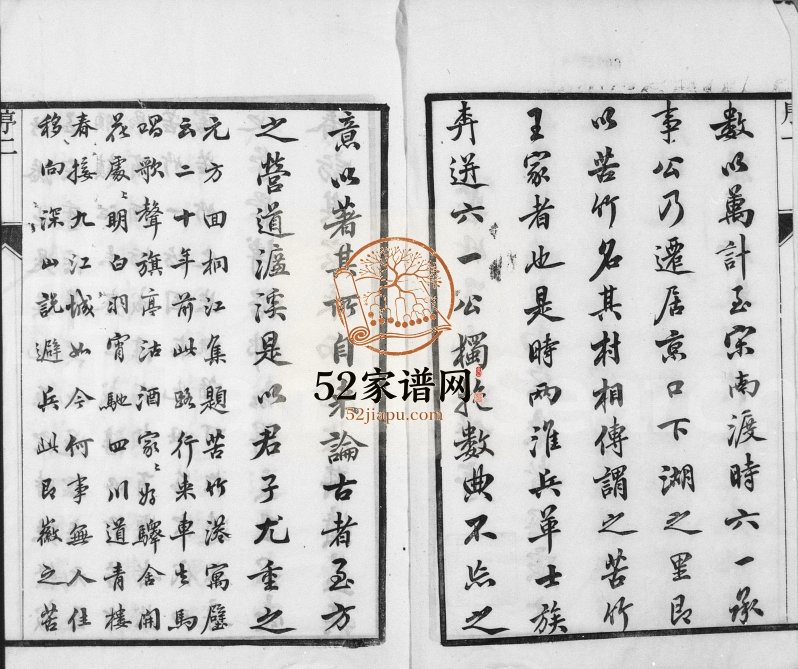 序二
數以萬計至宋南渡時六一承
事公乃遷居京口下湖之里即
以苦竹名其村相傳謂之苦竹
王家者也是時兩淮兵革士族
奔迸六一公獨能數典不忘之
意以著其所自來論古者至方
之營道濂溪是以君子尤重之
元方回桐江集題苦竹港寓壁
云二十年前此路行來車去馬
唱歌聲旗亭沽酒家〻好驛舍開
花處〻明白羽宵馳四川道青樓
春接九江城如今何事無人住
移向深山說避兵此即徽之苦
序二
52家谱网
52jiapu.com